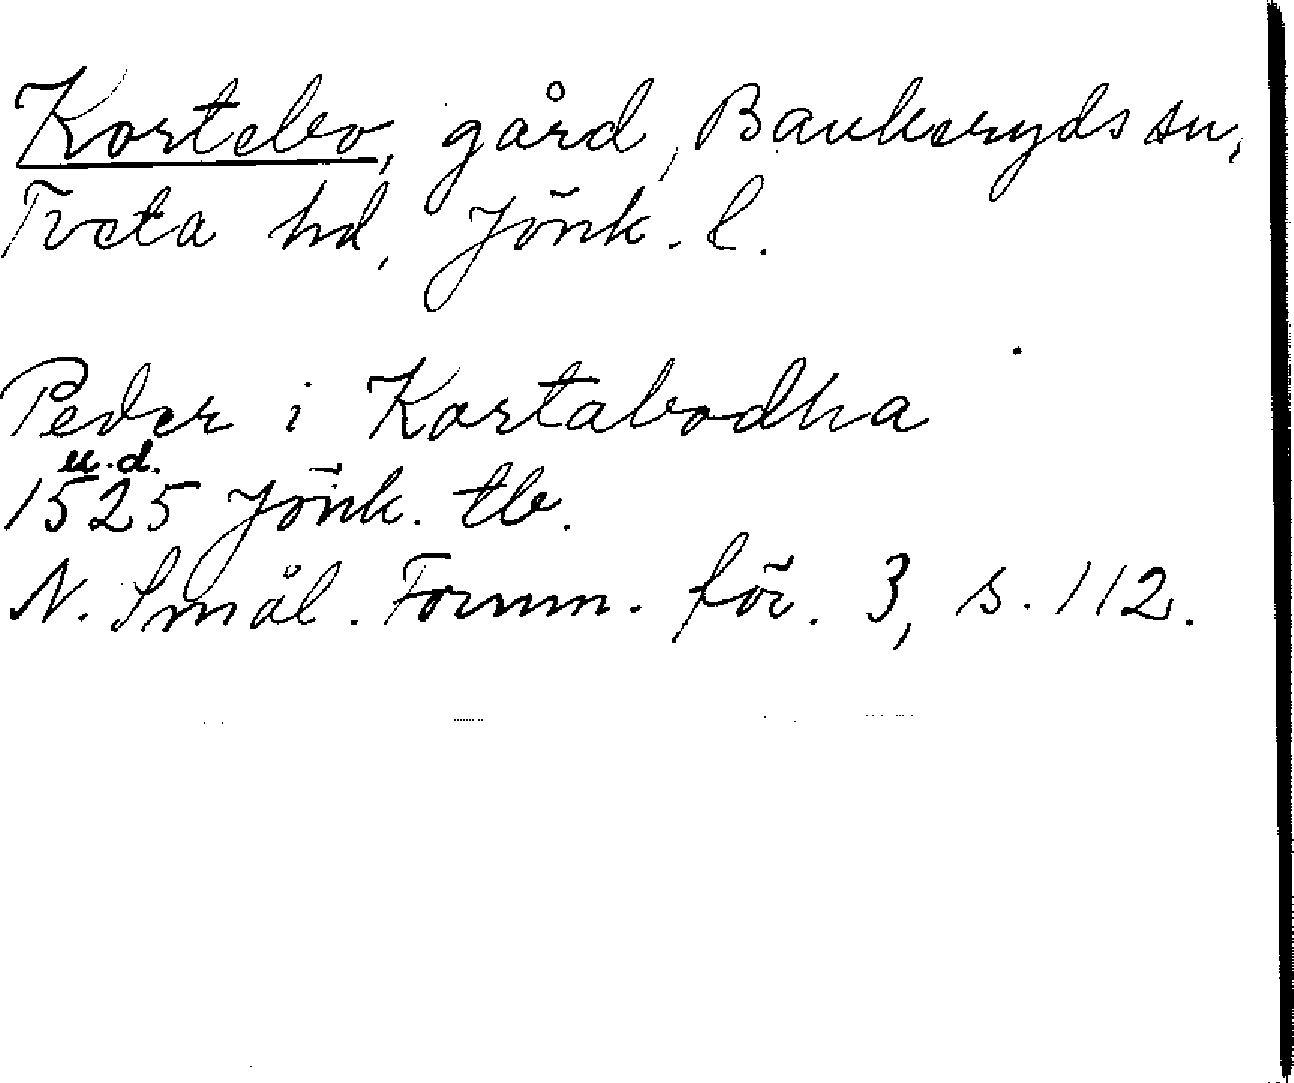 Kortebo, gård, Bankeryds sn,
Tveta hd, Jönk. l.
Peder i Kortabodha
u.d.
1525 Jönk. tb.
N. Smål. Fornm. för. 3, s. 112.